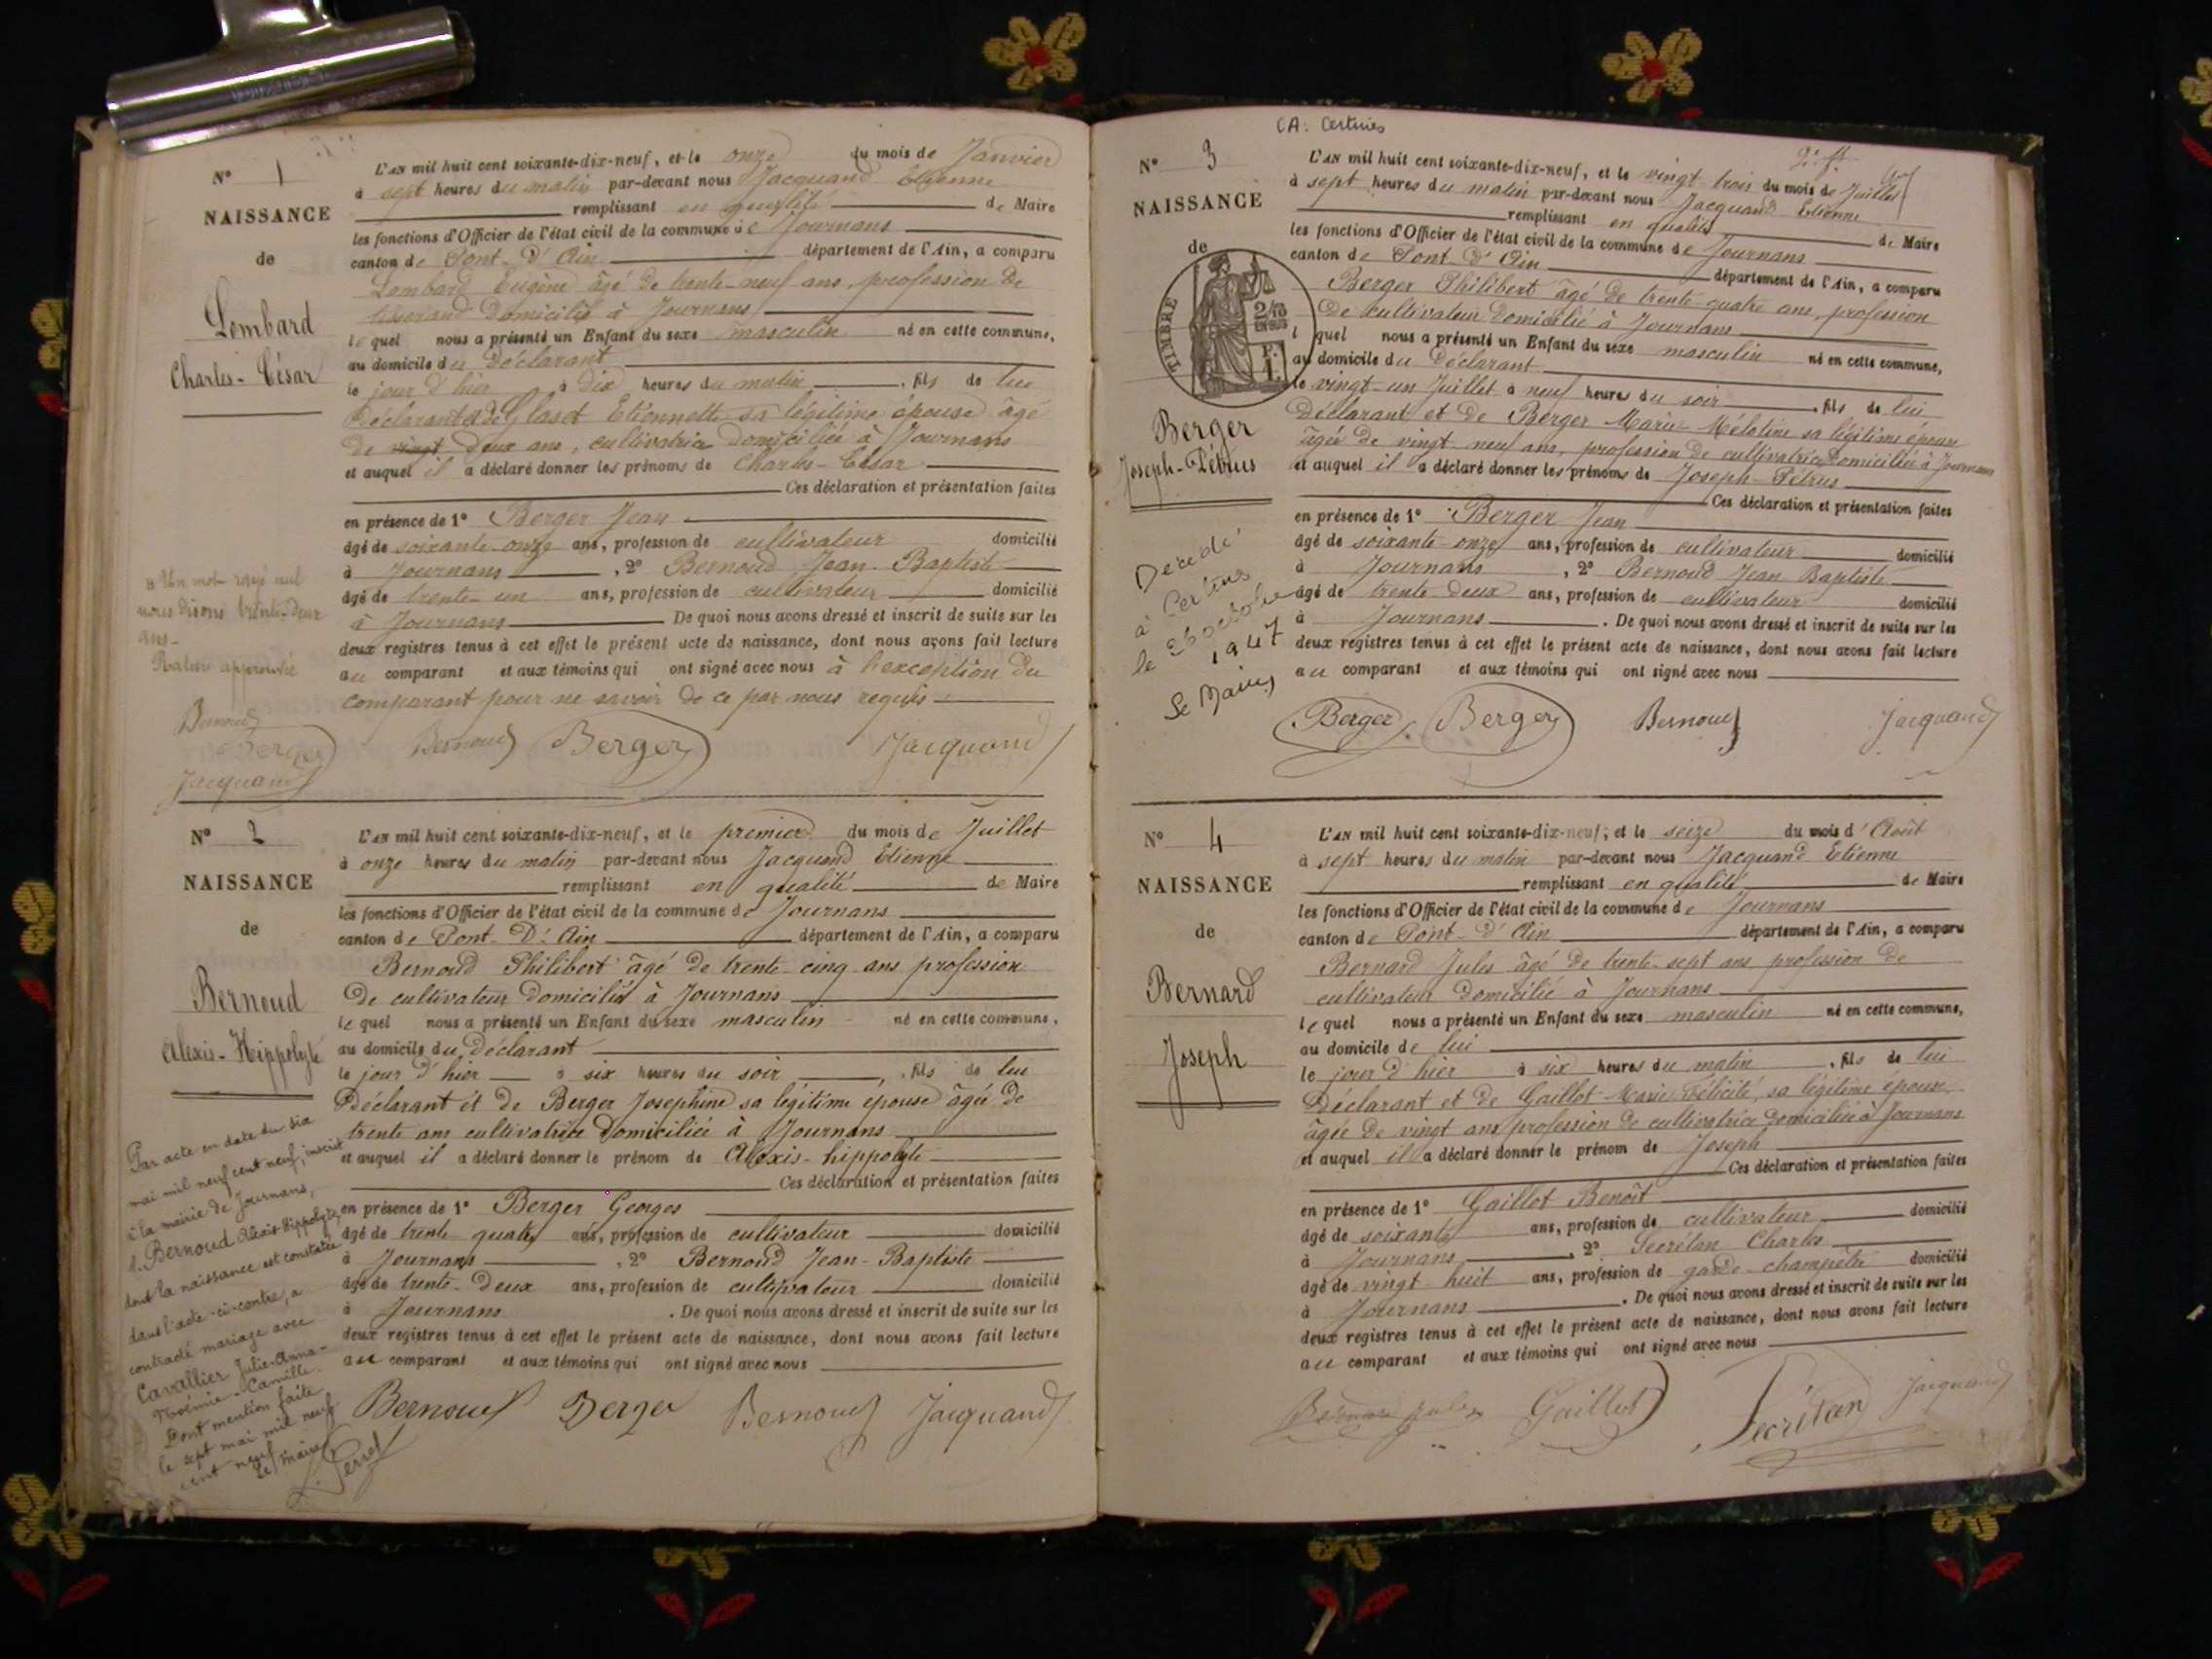 N° 1
NAISSANCE
de
Lombard
Charles-César
L'AN mil huit cent soixante-dix-neuf, et le onze du mois de Janvier
à sept heures du matin par-devant nous Jacquand Etienne
remplissant en qualité de Maire
les fonctions d'Officier de l'état civil de la commune de Journans
canton de Pont-d'Ain département de l'Ain, a comparu
Lombard Eugène âgé de trente-neuf ans, profession de
tisserand domicilié à Journans
lequel nous a présenté un Enfant du sexe masculin né en cette commune,
au domicile du déclarant
le jour d'hier à dix heures du matin, fils de lui
déclarant et de Glaset Etiennette sa légitime épouse âgé
de vingt deux ans, cultivatrice domiciliée à Journans
et auquel il a déclaré donner les prénoms de Charles-César
Ces déclaration et présentation faites
en présence de 1° Berger Jean
âgé de soixante-onze ans, profession de cultivateur domicilié
à Journans, 2° Bernoud Jean-Baptiste
âgé de trente-un ans, profession de cultivateur domicilié
à Journans De quoi nous avons dressé et inscrit de suite sur les
deux registres tenus à cet effet le présent acte de naissance, dont nous avons fait lecture
au comparant et aux témoins qui ont signé avec nous à l'exception du
comparant pour ne savoir de ce par nous requis
Un mot rayé nul
nous disons trente-deux
ans
Rature approuvée
Bernoud
Berger
Jacquand
Bernoud Berger Jacquand
N° 2
NAISSANCE
de
Bernoud
Alexis-Hippolyte
L'AN mil huit cent soixante-dix-neuf, et le premier du mois de Juillet
à onze heures du matin par-devant nous Jacquand Etienne
remplissant en qualité de Maire
les fonctions d'Officier de l'état civil de la commune de Journans
canton de Pont-D'Ain département de l'Ain, a comparu
Bernoud Philibert âgé de trente-cinq ans profession
de cultivateur domicilié à Journans
lequel nous a présenté un Enfant du sexe masculin né en cette commune,
au domicile du déclarant
le jour d'hier à six heures du soir, fils de lui
déclarant et de Berger Josephine sa légitime épouse âgée de
trente ans cultivatrice domiciliée à Journans
et auquel il a déclaré donner le prénom de Alexis-hippolyte
Ces déclaration et présentation faites
en présence de 1° Berger Georges
âgé de trente quatre ans, profession de cultivateur domicilié
à Journans, 2° Bernoud Jean-Baptiste
âgé de trente-deux ans, profession de cultivateur domicilié
à Journans. De quoi nous avons dressé et inscrit de suite sur les
deux registres tenus à cet effet le présent acte de naissance, dont nous avons fait lecture
au comparant et aux témoins qui ont signé avec nous
Par acte en date du six
mai mil neuf cent neuf, inscrit
à la mairie de Journans,
Bernoud Alexis-Hippolyte,
dont la naissance est constatée
dans l'acte-ci-contre, a
contracté mariage avec
Cavallier Julie-Anna-
Noémie-Camille.
Dont mention faite
le sept mai mil neuf
cent neuf
Le Maire
Bernoud Berger Bernoud Jacquand
CA: Certines
N° 3
NAISSANCE
de
TIMBRE
Berger
Joseph-Pétrus
L'AN mil huit cent soixante-dix-neuf, et le vingt-trois du mois de Juillet
à sept heures du matin par-devant nous Jacquand Etienne
remplissant en qualité de Maire
les fonctions d'Officier de l'état civil de la commune de Journans
canton de Pont-d'Ain département de l'Ain, a comparu
Berger Philibert âgé de trente-quatre ans, profession
de cultivateur domicilié à Journans
lequel nous a présenté un Enfant du sexe masculin né en cette commune,
au domicile du déclarant
le vingt-un Juillet à neuf heures du soir, fils de lui
déclarant et de Berger Marie-Mélatine sa légitime épouse
âgée de vingt-neuf ans, profession de cultivatrice domiciliée à Journans
et auquel il a déclaré donner les prénoms de Joseph-Pétrus
Ces déclaration et présentation faites
en présence de 1° Berger Jean
âgé de soixante-onze ans, profession de cultivateur domicilié
à Journans, 2° Bernoud Jean Baptiste
âgé de trente-deux ans, profession de cultivateur domicilié
à Journans. De quoi nous avons dressé et inscrit de suite sur les
deux registres tenus à cet effet le présent acte de naissance, dont nous avons fait lecture
au comparant et aux témoins qui ont signé avec nous
Décédé
à Certines
le 26 octobre
1947
Le Maire,
Berger Berger Bernoud Jacquand
N° 4
NAISSANCE
de
Bernard
Joseph
L'AN mil huit cent soixante-dix-neuf, et le seize du mois d'Août
à sept heures du matin par-devant nous Jacquand Etienne
remplissant en qualité de Maire
les fonctions d'Officier de l'état civil de la commune de Journans
canton de Pont-d'Ain département de l'Ain, a comparu
Bernard Jules âgé de trente-sept ans profession de
cultivateur domicilié à Journans
lequel nous a présenté un Enfant du sexe masculin né en cette commune,
au domicile de lui
le jour d'hier à six heures du matin, fils de lui
déclarant et de Gaillot Marie-Félicité, sa légitime épouse
âgée de vingt ans profession de cultivatrice domiciliée à Journans
et auquel il a déclaré donner le prénom de Joseph
Ces déclaration et présentation faites
en présence de 1° Gaillot Benoît
âgé de soixante ans, profession de cultivateur domicilié
à Journans, 2° Secrétan Charles
âgé de vingt-huit ans, profession de garde-champêtre domicilié
à Journans. De quoi nous avons dressé et inscrit de suite sur les
deux registres tenus à cet effet le présent acte de naissance, dont nous avons fait lecture
au comparant et aux témoins qui ont signé avec nous
Bernard Jules Gaillot Secrétan Jacquand